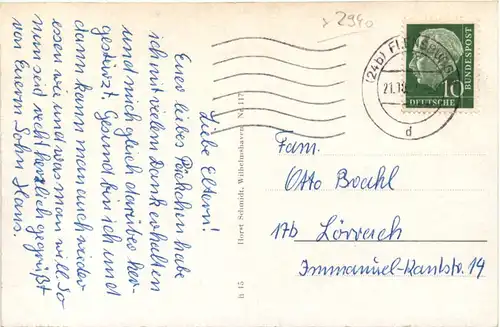 Liebe Eltern!
Euer liebes Päckchen habe
ich mit vielem Dank erhalten
und mich gleich darüber her-
gestürzt. Gesund bin ich und
dann kann man auch wieder
essen wie und was man will. So
nun seid recht herzlich gegrüßt
von Eurem Sohn Hans.
Horst Schmidt, Wilhelmshaven Nr. 117
B 15
2940
(24b) FLENSBURG
d
DEUTSCHE
BUNDESPOST
10
Fam.
Otto Boahl
17b Lörrach
Immanuel-Kantstr. 14